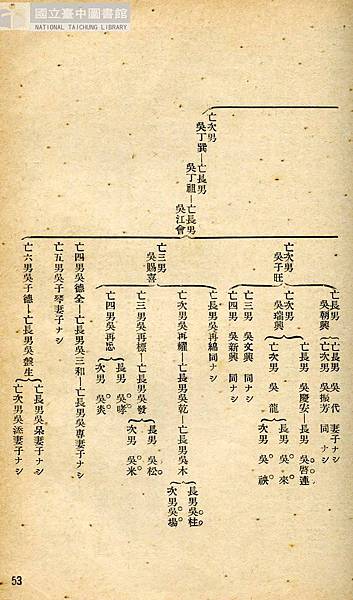 國立臺中圖書館
NATIONAL TAICHUNG LIBRARY
亡次男
吳丁巽
亡長男
吳丁祖
亡長男
吳江會
亡次男
吳子旺
亡長男
吳朝興
亡長男 吳 代 妻子ナシ
亡次男 吳振芳 同 ナシ
亡次男
吳瑞興
亡長男 吳慶安
長男 吳啓連
次男 吳 來
亡次男 吳 龍
亡三男 吳文興 同ナシ
亡四男 吳新興 同ナシ
亡三男
吳賜喜
亡長男吳再綿同ナシ
亡次男吳再耀
亡長男吳乾
亡長男吳木
長男吳柱
次男吳場
亡三男吳再標
亡長男吳發
長男 吳松
次男 吳米
亡四男吳再忠
長男 吳哮
次男 吳炎
亡四男吳德全
亡長男吳三和
亡長男吳專妻子ナシ
亡五男吳子琴妻子ナシ
亡六男吳子德
亡長男吳盤生
亡長男吳朵妻子ナシ
亡次男吳添妻子ナシ
53